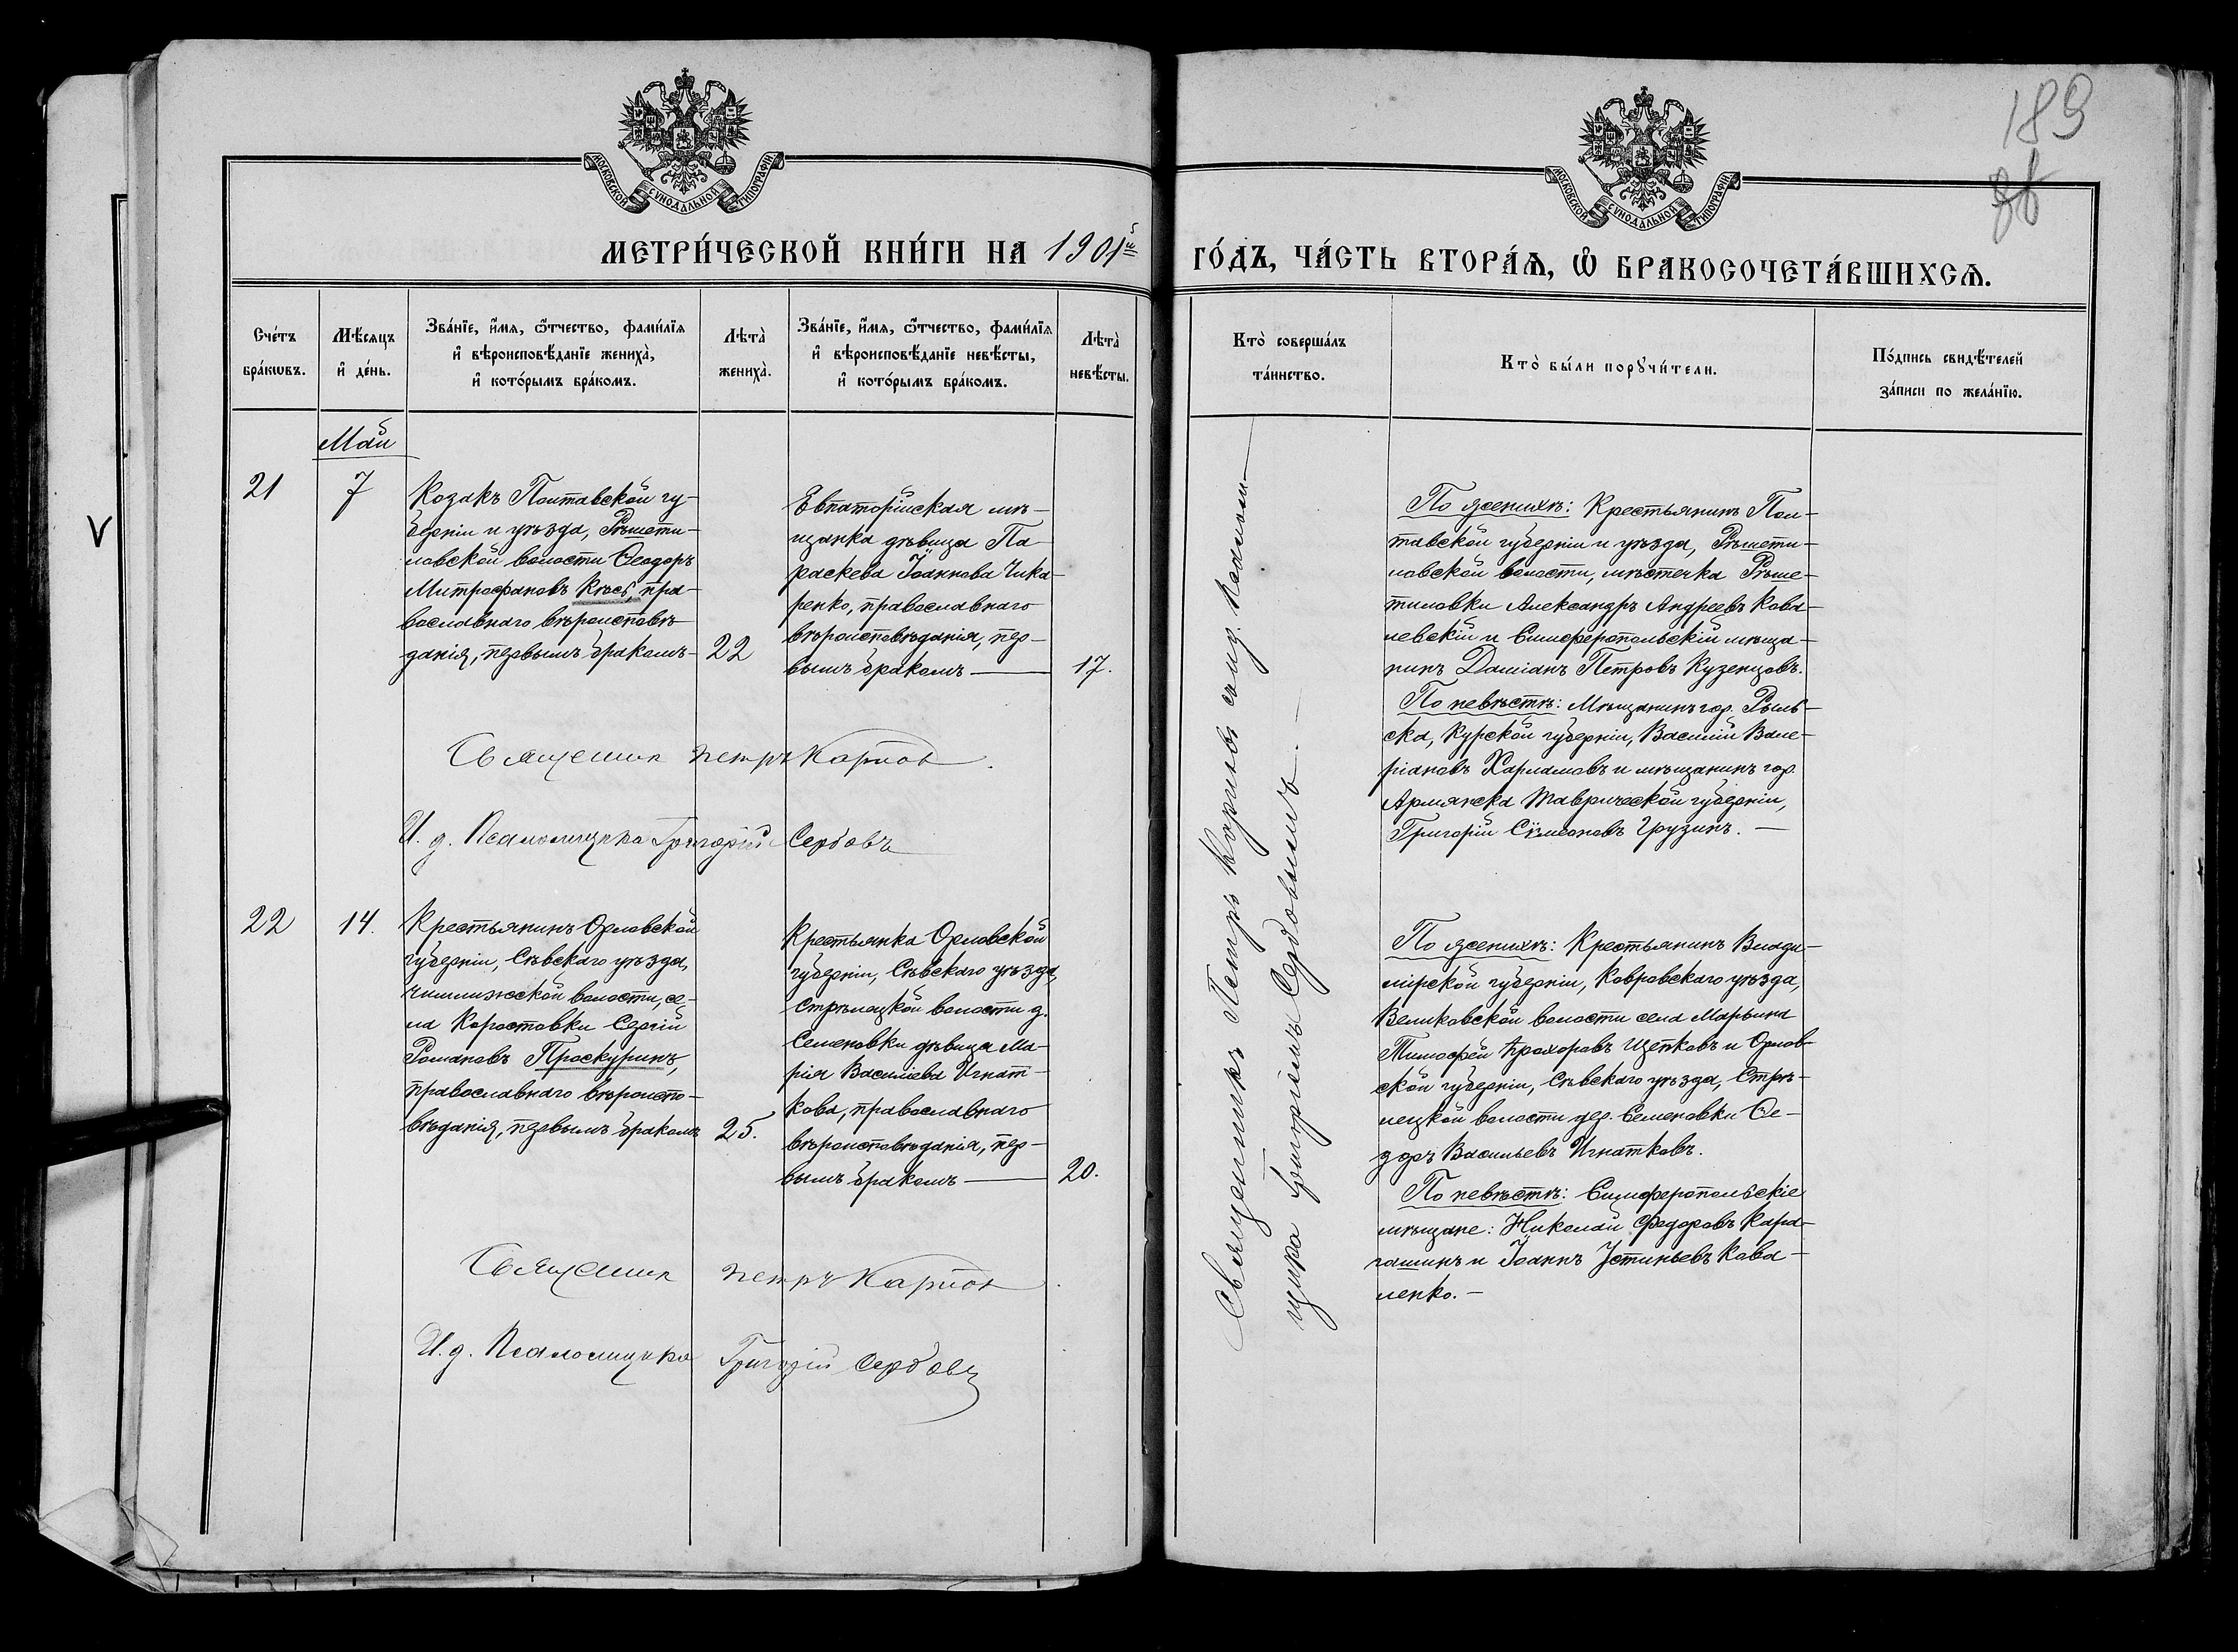 189
МОСКОВСКОЙ СѴНОДАЛЬНОЙ ТИПОГРАФІИ
МОСКОВСКОЙ СѴНОДАЛЬНОЙ ТИПОГРАФІИ
МЕТРИ́ЧЕСКОЙ КНИ́ГИ НА 1901й
ГО́ДЪ, ЧА́СТЬ ВТОРА́Ѧ, Ѽ БРАКОСОЧЕТА́ВШИХСѦ.
Сче́тъ
бра́кѡвъ.
Мѣ́сѧцъ
и҆ де́нь.
Зва́нїе, и҆́мѧ, ѻ҆́тчество, фами́лїѧ
и҆ вѣроисповѣ́данїе жениха̀,
и҆ кото́рымъ бра́комъ.
Лѣта̀
жениха̀.
Зва́нїе, и҆́мѧ, ѻ҆́тчество, фами́лїѧ
и҆ вѣроисповѣ́данїе невѣ́сты,
и҆ кото́рымъ бра́комъ.
Лѣта̀
невѣ́сты.
Кто̀ соверша́лъ
та́инство.
Кто̀ бы́ли порꙋчи́тели.
По́дпись свидѣ́телей
за́писи по жела́нїю.
Май
21
7
Козакъ Полтавской гу-
берніи и уѣзда, Рѣшети-
ловской волости Ѳеодоръ
Митрофановъ Кость, пра-
вославнаго вѣроисповѣ-
данія, первымъ бракомъ
22
Евпаторійская мѣ-
щанка дѣвица Па-
раскева Іоаннова Чика-
ренко, православнаго
вѣроисповѣданія, пер-
вымъ бракомъ —
17.
По женихѣ: Крестьянинъ Пол-
тавской губерніи и уѣзда, Рѣшети-
ловской волости, мѣстечка Рѣше-
тиловки Александръ Андреевъ Кова-
левскій и Симферопольскій мѣща-
нинъ Даміанъ Петровъ Кузенцовъ.
По невѣстѣ: Мѣщанинъ гор. Рыль-
ска, Курской губерніи, Василій Вале-
ріановъ Харламовъ и мѣщанинъ гор.
Армянска Таврической губерніи,
Григорій Сѵмеоновъ Грузинъ. —
Священник Петръ Карпов.
И. д. Псаломщика Григорій Сербовъ
22
14.
Крестьянинъ Орловской
губерніи, Сѣвскаго уѣзда,
волости, се-
ла Коростовки Сергій
Романовъ Проскуринъ,
православнаго вѣроиспо-
вѣданія, первымъ бракомъ
25.
Крестьянка Орловской
губерніи, Сѣвскаго уѣзда,
Стрѣлецкой волости д.
Семеновки дѣвица Ма-
рія Василіева Игнат-
кова, православнаго
вѣроисповѣданія, пер-
вымъ бракомъ —
20.
Священникъ Петръ Карповъ съ и. д. псалом-
щика Григоріемъ Сербовымъ. —
По женихѣ: Крестьянинъ Влади-
мірской губерніи, Ковровскаго уѣзда,
Великовской волости села Марьина
Тимофей Прохоровъ Щепковъ и Орлов-
ской губерніи, Сѣвскаго уѣзда, Стрѣ-
лецкой волости дер. Семеновки Ѳе-
доръ Васильевъ Игнатковъ.
По невѣстѣ: Симферопольскіе
мѣщане: Николай Федоровъ Кара-
гашинъ и Іоаннъ Устиньевъ Кова-
ленко. —
Священник Петръ Карпов.
И. д. Псаломщика Григорій Сербовъ